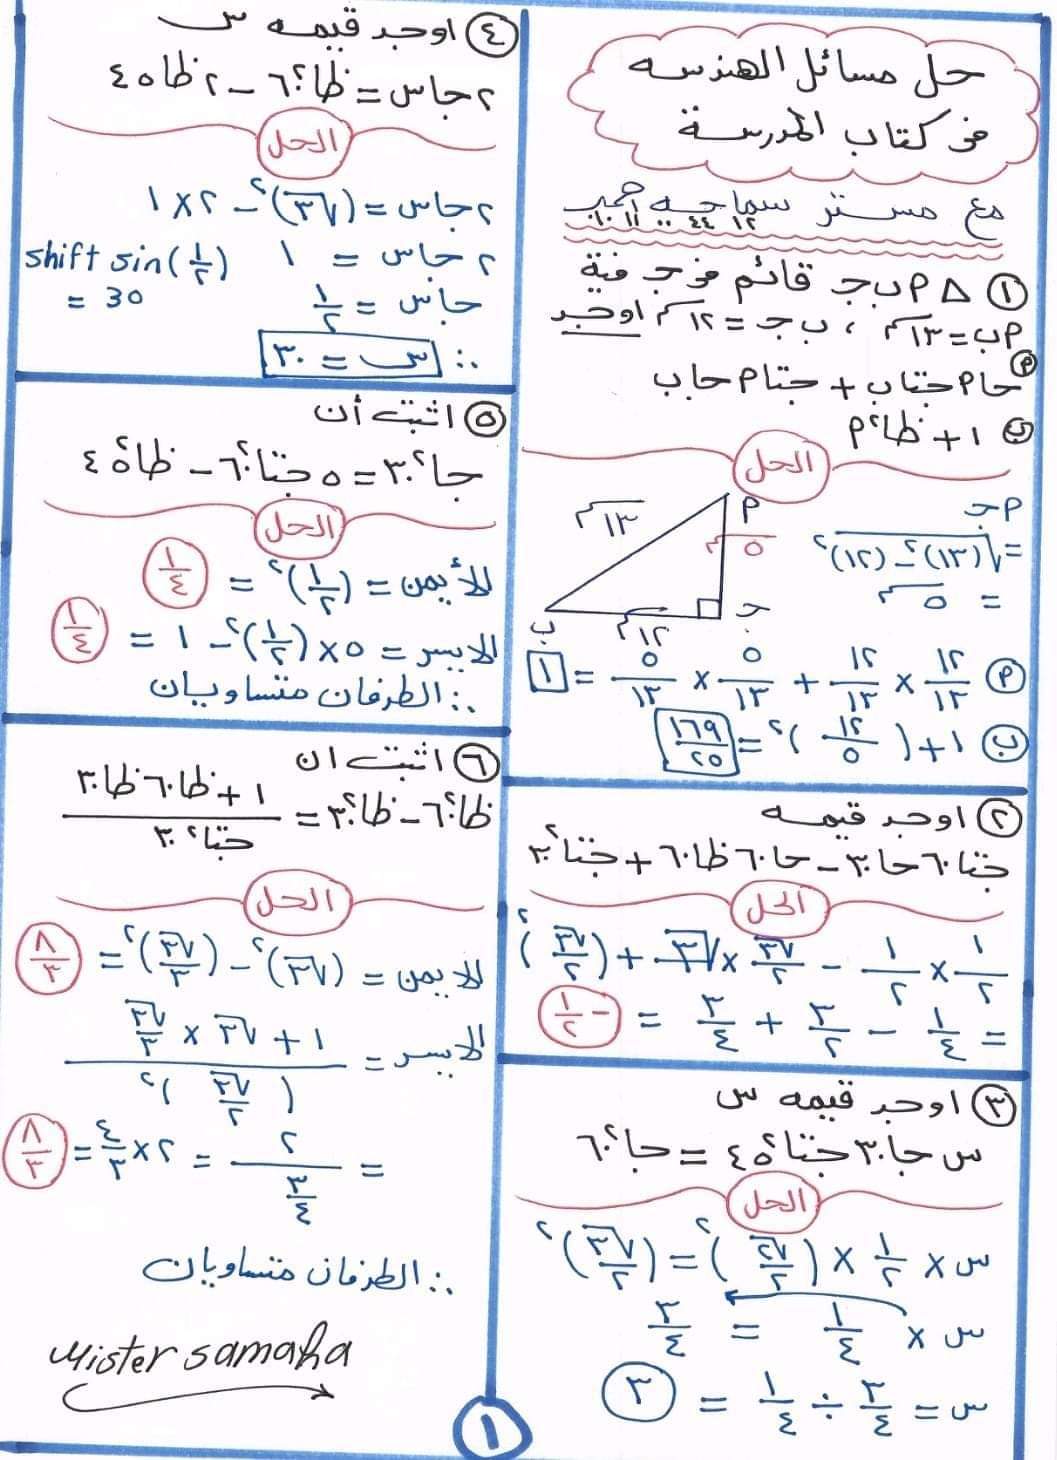 حل مسائل الهندسه
فى كتاب المدرسة
مع مستر سماحه احمد
① △ م ب جـ قائم فى جـ فية
م ب = ١٣ سم ، ب جـ = ١٢ سم اوجد
(م) حا م حتا ب + جتا م حا ب
(ب) ١ + ظا² م
الحل
م جـ
= √(١٣)² - (١٢)²
= ٥ سم
م
١٣ سم
٥ سم
جـ
ب
١٢ سم
(م) ١٢/١٣ × ١٢/١٣ + ٥/١٣ × ٥/١٣ = ١
(ب) ١ + (١٢/٥)² = ١٦٩/٢٥
② اوجد قيمه
جتا ٦٠ حا ٣٠ - حا ٦٠ ظا ٦٠ + جتا² ٣٠
الحل
١/٢ × ١/٢ - √٣/٢ × √٣ + (√٣/٢)²
= ١/٤ - ٣/٢ + ٣/٤ = -١/٢
③ اوجد قيمه س
س جا ٣٠ جتا² ٤٥ = جا² ٦٠
الحل
س × ١/٢ × (√٢/٢)² = (√٣/٢)²
س × ١/٤ = ٣/٤
س = ٣/٤ ÷ ١/٤ = ٣
④ اوجد قيمه س
٢ جا س = ظا² ٦٠ - ٢ ظا ٤٥
الحل
٢ جا س = (√٣)² - ٢ × ١
٢ جا س = ١
shift sin(١/٢)
= 30
جا س = ١/٢
∴ س = ٣٠
⑤ اثبت أن
جا² ٣٠ = ٥ جتا² ٦٠ - ظا² ٤٥
الحل
الأيمن = (١/٢)² = ١/٤
الايسر = ٥ × (١/٢)² - ١ = ١/٤
∴ الطرفان متساويان
⑥ اثبت ان
ظا² ٦٠ - ظا² ٣٠ = (١ + ظا ٦٠ ظا ٣٠)/(جتا² ٣٠)
الحل
الايمن = (√٣)² - (√٣/٣)² = ٨/٣
الايسر = (١ + √٣ × √٣/٣)/((√٣/٢)²)
= ٢/(٣/٤) = ٢ × ٤/٣ = ٨/٣
∴ الطرفان متساويان
Mister samaha
١